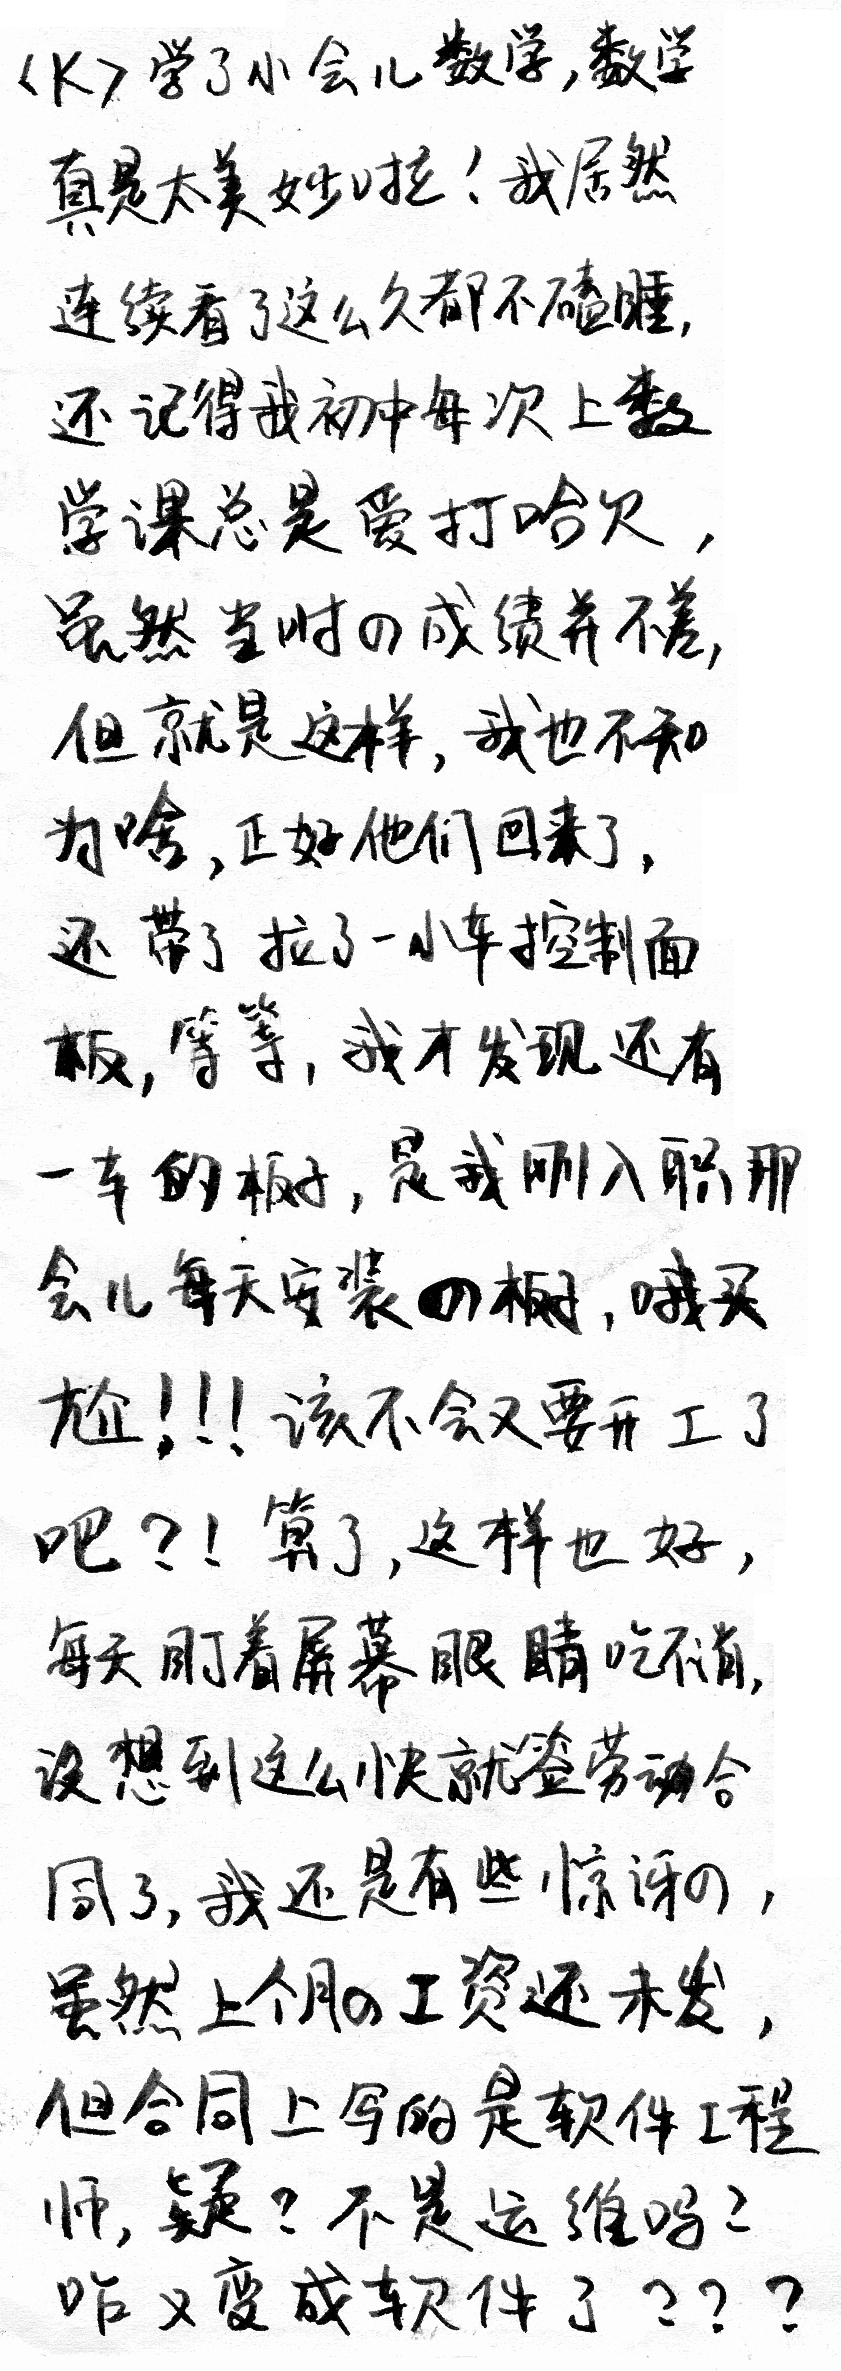 <K>学了小会儿数学,数学
真是太美妙啦！我居然
连续看了这么久都不磕睡,
还记得我初中每次上数
学课总是爱打哈欠，
虽然当时の成绩并不差,
但就是这样,我也不知
为啥,正好他们回来了,
还带了拉了一小车控制面
板,等等,我才发现还有
一车的板子,是我刚入职那
会儿每天安装の板子,哦买
尬!!!该不会又要开工了
吧?!算了,这样也好,
每天盯着屏幕眼睛吃不消,
没想到这么快就签劳动合
同了,我还是有些惊讶の,
虽然上个月の工资还未发,
但合同上写的是软件工程
师,疑?不是运维吗?
咋又变成软件了???